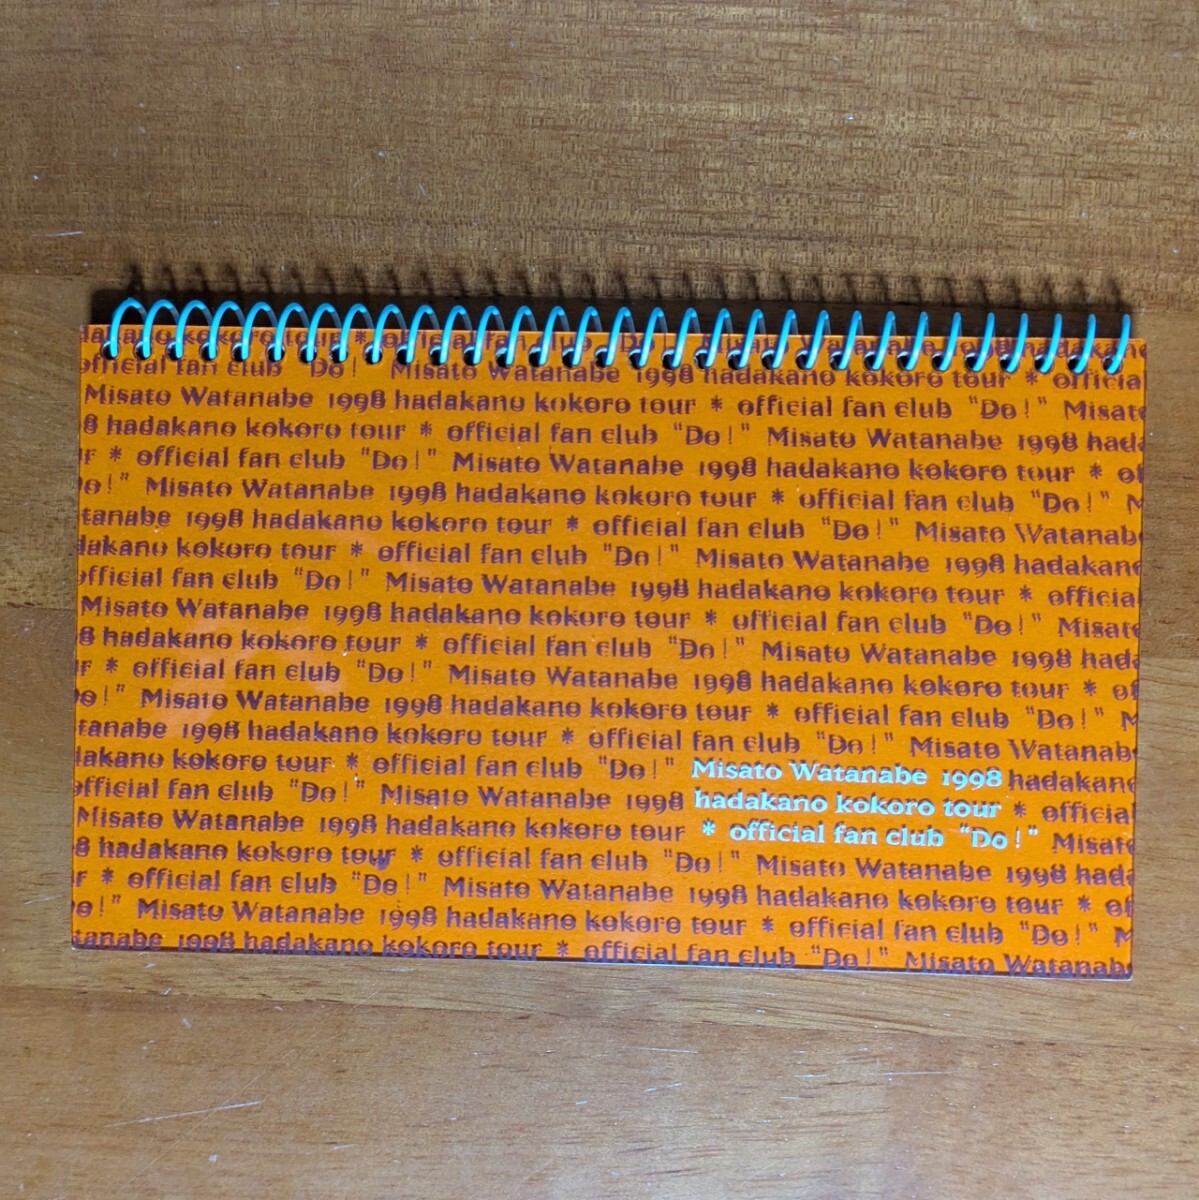 dakano kokoro tour * official fan club "Do!" Misato Watanabe 1998 hadakano
official fan club "Do!" Misato Watanabe 1998 hadakano kokoro tour * officia
Misato Watanabe 1998 hadakano kokoro tour * official fan club "Do!" Misato
8 hadakano kokoro tour * official fan club "Do!" Misato Watanabe 1998 hada
r * official fan club "Do!" Misato Watanabe 1998 hadakano kokoro tour * of
o!" Misato Watanabe 1998 hadakano kokoro tour * official fan club "Do!" M
tanabe 1998 hadakano kokoro tour * official fan club "Do!" Misato Watanab
dakano kokoro tour * official fan club "Do!" Misato Watanabe 1998 hadakano
official fan club "Do!" Misato Watanabe 1998 hadakano kokoro tour * official
Misato Watanabe 1998 hadakano kokoro tour * official fan club "Do!" Misato
8 hadakano kokoro tour * official fan club "Do!" Misato Watanabe 1998 hada
r * official fan club "Do!" Misato Watanabe 1998 hadakano kokoro tour * of
o!" Misato Watanabe 1998 hadakano kokoro tour * official fan club "Do!" M
tanabe 1998 hadakano kokoro tour * official fan club "Do!" Misato Watanab
dakano kokoro tour * official fan club "Do!" Misato Watanabe 1998 hadakano
official fan club "Do!" Misato Watanabe 1998 hadakano kokoro tour * official
Misato Watanabe 1998 hadakano kokoro tour * official fan club "Do!" Misato
8 hadakano kokoro tour * official fan club "Do!" Misato Watanabe 1998 hada
r * official fan club "Do!" Misato Watanabe 1998 hadakano kokoro tour * of
o!" Misato Watanabe 1998 hadakano kokoro tour * official fan club "Do!" M
tanabe 1998 hadakano kokoro tour * official fan club "Do!" Misato Watanab